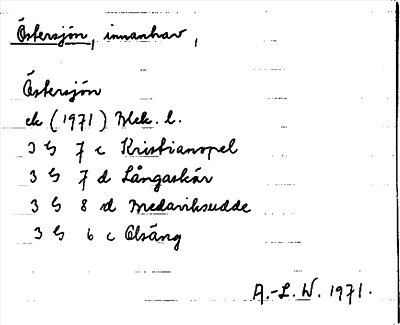 Östersjön, innanhav,
Östersjön
ek (1971) Blek. l.
3 G 7 c Kristianopel
3 G 7 d Långaskär
3 G 8 d Medaviksudde
3 G 6 c Olsäng
A.-L. W. 1971.